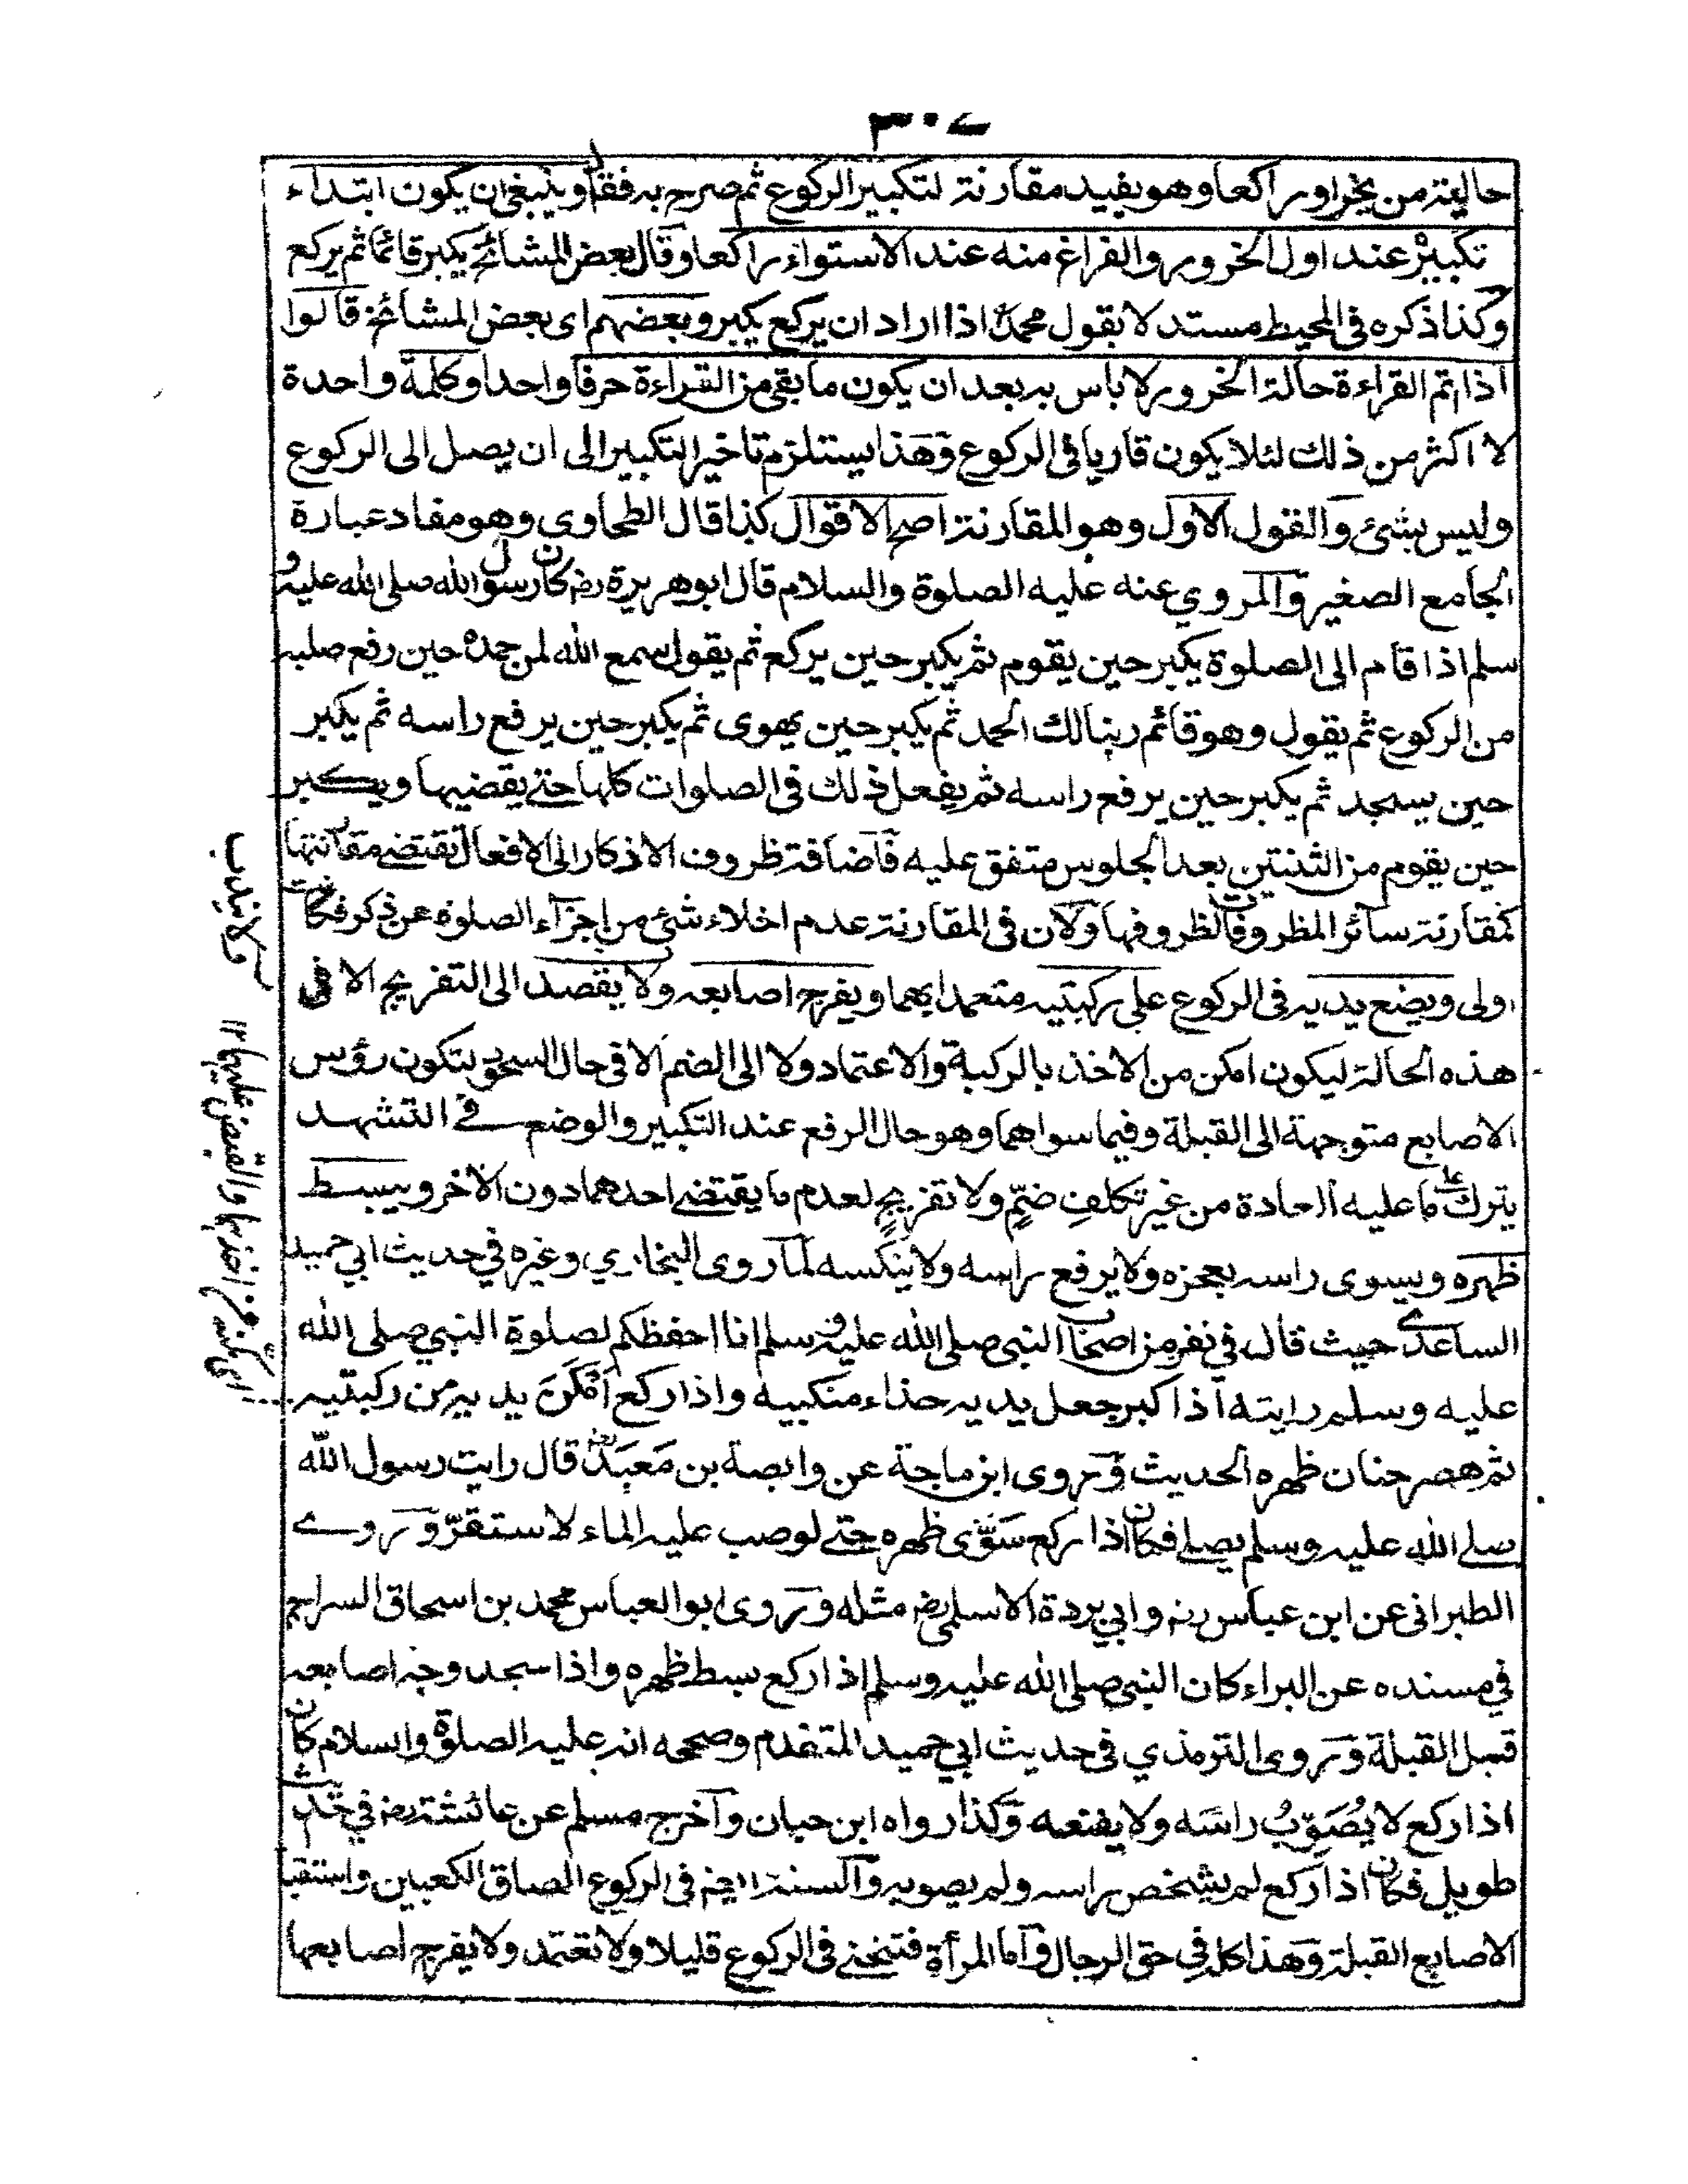 ٣٠٧
حالية من يخر او راكعا وهو يفيد مقارنة لتكبير الركوع ثم صرح به فقال وينبغي ان يكون ابتداء
تكبيره عند اول الخرور والفراغ منه عند الاستواء راكعا وقال بعض المشائخ يكبر قائما ثم يركع
وكذا ذكره فى المحيط مستدلا بقول محمد اذا اراد ان يركع يكبر وبعضهم اى بعض المشائخ قالوا
اذا اتم القراءة حالة الخرور لا باس به بعد ان يكون ما بقى من القراءة حرفا واحدا وكلمة واحدة
لا اكثر من ذلك لئلا يكون قاريا فى الركوع وهذا يستلزم تاخير التكبير الى ان يصل الى الركوع
وليس بشئ والقول الاول وهو المقارنة اصح الاقوال كذا قال الطحاوى وهو مفاد عبارة
الجامع الصغير والمروي عنه عليه الصلوة والسلام قال ابو هريرة رض كان رسول الله صلى الله عليه و
سلم اذا قام الى الصلوة يكبر حين يقوم ثم يكبر حين يركع ثم يقول سمع الله لمن حمده حين رفع صلبه
من الركوع ثم يقول وهو قائم ربنا لك الحمد ثم يكبر حين يهوى ثم يكبر حين يرفع راسه ثم يكبر
حين يسجد ثم يكبر حين يرفع راسه ثم يفعل ذلك فى الصلوات كلها حتى يقضيها ويكبر
حين يقوم من الثنتين بعد الجلوس متفق عليه فاضافة ظروف الاذكار الى الافعال تقتضى مقارنتها
كمقارنة سائر المظروفات لظروفها ولان فى المقارنة عدم اخلاء شئ من اجزاء الصلوة عن ذكر فكانت
اولى ويضع يديه فى الركوع على ركبتيه متعمدا بهما ويفرج اصابعه ولا يقصد الى التفريج الا فى
هذه الحالة ليكون امكن من الاخذ بالركبة والاعتماد ولا الى الضم الا فى حال السجود لتكون رؤس
الاصابع متوجهة الى القبلة وفيما سواهما وهو حال الرفع عند التكبير والوضع فى التشهد
يترك على ما عليه العادة من غير تكلف ضمّ ولا تفريج لعدم ما يقتضى احدهما دون الاخر ويبسط
ظهره ويسوى راسه بعجزه ولا يرفع راسه ولا ينكسه لما روى البخاري وغيره في حديث ابي حميد
الساعدى حيث قال في نفر من اصحاب النبى صلى الله عليه وسلم انا احفظكم لصلوة النبي صلى الله
عليه وسلم رايته اذا كبر جعل يديه حذاء منكبيه واذا ركع اَمْكَنَ يديه من ركبتيه
ثم هصر حنان ظهره الحديث وروى ابن ماجة عن وابصة بن مَعْبَد رض قال رايت رسول الله
صلى الله عليه وسلم يصلى فكان اذا ركع سَوّى ظهره حتى لو صب عليه الماء لاستقرّ وروى
الطبرانى عن ابن عباس رض وابي بردة الاسلمى رض مثله وروى ابو العباس محمد بن اسحاق السراج
في مسنده عن البراء كان النبى صلى الله عليه وسلم اذا ركع بسط ظهره واذا سجد وجه اصابعه
قبل القبلة وروى الترمذي فى حديث ابي حميد المتقدم وصححه انه عليه الصلوة والسلام كان
اذا ركع لا يُصَوِّبُ راسَه ولا يقنعه وكذا رواه ابن حبان واخرج مسلم عن عائشة رض في حديث
طويل فكان اذا ركع لم يشخص راسه ولم يصوبه والسنة ايضا فى الركوع الصاق الكعبين واستقبال
الاصابع القبلة وهذا كله في حق الرجال واما المرأة فتنحنى فى الركوع قليلا ولا تعتمد ولا يفرج اصابعها